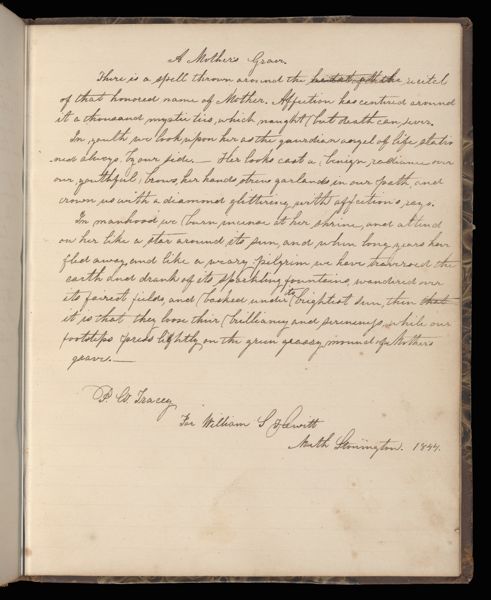 A Mother's Grave.
There is a spell thrown around the recital
of that honored name of Mother. Affection has centred around
it a thousand mystic ties, which naught but death can sever.
In youth we look upon her as the guardian angel of life, statio
ned always by our side, — Her looks cast a benign radiance over
our youthful brows, her hands strew garlands in our path and
crown us with a diamond glittering with affection's rays.
In manhood, we burn incense at her shrine, and attend
on her like a star around its sun, and when long years have
fled away, and like a weary pilgrim we have traversed the
earth and drank of its sparkling fountains, wandered over
its fairest fields, and basked under its brightest sun, then that
it is that they loose their brilliancy and sereneness, while our
footsteps press lightly on the green grassy mound of a Mother's
grave. —
P. W. Tracey
For William S Hewitt
North Stonington. 1844.